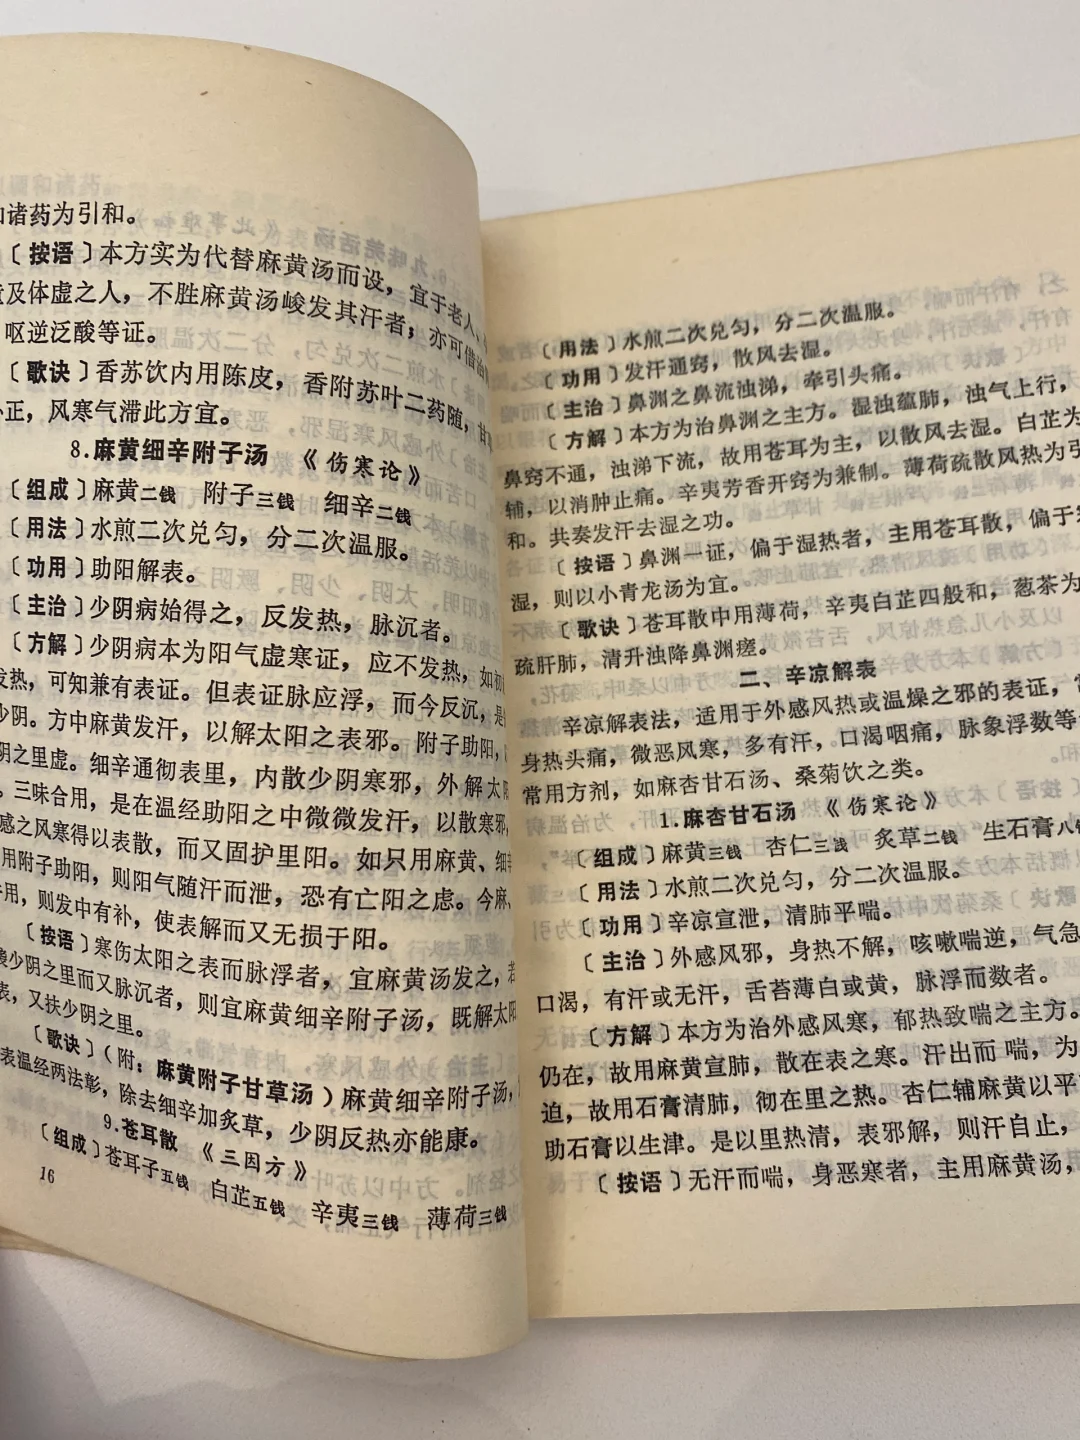 诸药为引和。
〔按语〕本方实为代替麻黄汤而设，宜于老人、
及体虚之人，不胜麻黄汤峻发其汗者；亦可借治
呕逆泛酸等证。
〔歌诀〕香苏饮内用陈皮，香附苏叶二药随，甘
正，风寒气滞此方宜。
8.麻黄细辛附子汤 《伤寒论》
〔组成〕麻黄二钱 附子三钱 细辛二钱
〔用法〕水煎二次兑匀，分二次温服。
〔功用〕助阳解表。
〔主治〕少阴病始得之，反发热，脉沉者。
〔方解〕少阴病本为阳气虚寒证，应不发热，如初
发热，可知兼有表证。但表证脉应浮，而今反沉，是
少阴。方中麻黄发汗，以解太阳之表邪。附子助阳，
阴之里虚。细辛通彻表里，内散少阴寒邪，外解太阳
。三味合用，是在温经助阳之中微微发汗，以散寒邪，
感之风寒得以表散，而又固护里阳。如只用麻黄、细辛
用附子助阳，则阳气随汗而泄，恐有亡阳之虑。今麻、
用，则发中有补，使表解而又无损于阳。
〔按语〕寒伤太阳之表而脉浮者，宜麻黄汤发之，若
少阴之里而又脉沉者，则宜麻黄细辛附子汤，既解太阳
表，又扶少阴之里。
〔歌诀〕（附：麻黄附子甘草汤）麻黄细辛附子汤，
表温经两法彰，除去细辛加炙草，少阴反热亦能康。
9.苍耳散 《三因方》
〔组成〕苍耳子五钱 白芷五钱 辛夷三钱 薄荷三钱
16
〔用法〕水煎二次兑匀，分二次温服。
〔功用〕发汗通窍，散风去湿。
〔主治〕鼻渊之鼻流浊涕，牵引头痛。
〔方解〕本方为治鼻渊之主方。湿浊蕴肺，浊气上行，
鼻窍不通，浊涕下流，故用苍耳为主，以散风去湿。白芷为
辅，以消肿止痛。辛夷芳香开窍为兼制。薄荷疏散风热为引
和。共奏发汗去湿之功。
〔按语〕鼻渊一证，偏于湿热者，主用苍耳散，偏于寒
湿，则以小青龙汤为宜。
〔歌诀〕苍耳散中用薄荷，辛夷白芷四般和，葱茶为
疏肝肺，清升浊降鼻渊瘥。
二、辛凉解表
辛凉解表法，适用于外感风热或温燥之邪的表证，
身热头痛，微恶风寒，多有汗，口渴咽痛，脉象浮数等
常用方剂，如麻杏甘石汤、桑菊饮之类。
1.麻杏甘石汤 《伤寒论》
〔组成〕麻黄三钱 杏仁三钱 炙草二钱 生石膏八钱
〔用法〕水煎二次兑匀，分二次温服。
〔功用〕辛凉宣泄，清肺平喘。
〔主治〕外感风邪，身热不解，咳嗽喘逆，气急
口渴，有汗或无汗，舌苔薄白或黄，脉浮而数者。
〔方解〕本方为治外感风寒，郁热致喘之主方。
仍在，故用麻黄宣肺，散在表之寒。汗出而喘，为
迫，故用石膏清肺，彻在里之热。杏仁辅麻黄以平
助石膏以生津。是以里热清，表邪解，则汗自止，
〔按语〕无汗而喘，身恶寒者，主用麻黄汤，